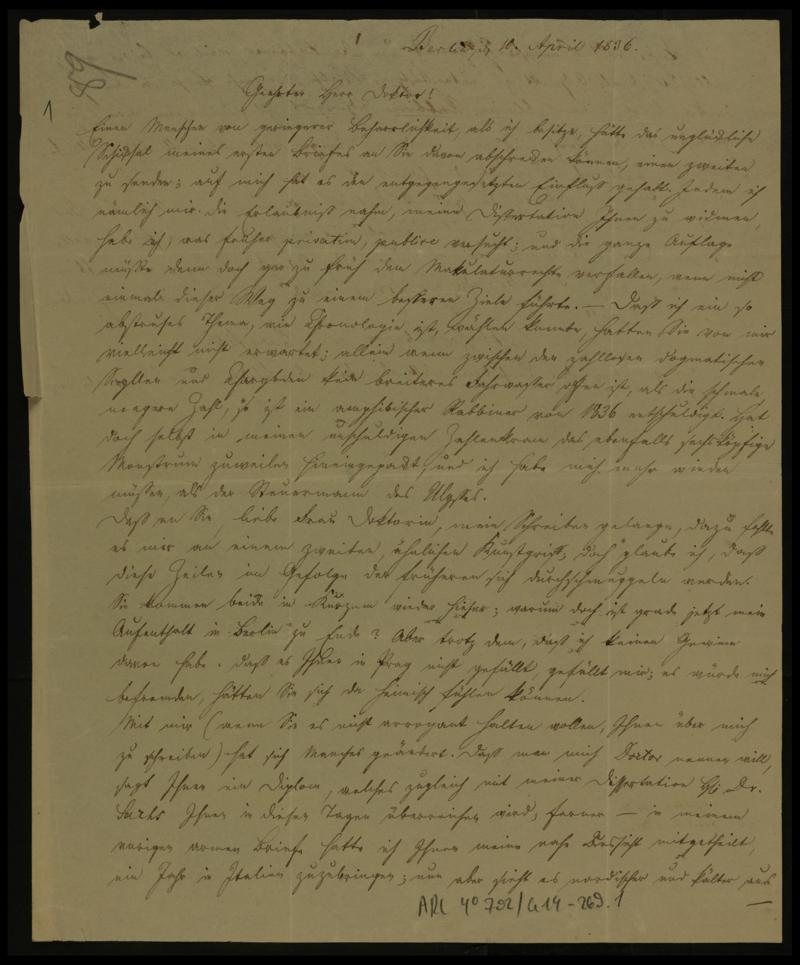 Berlin, 10. April 1836.
Geehrter Herr Doktor!
Einen Menschen von geringerer Beharrlichkeit, als ich besitze, hätte das unglückliche
Schicksal meines ersten Briefes an Sie davon abschrecken können, einen zweiten
zu senden; auf mich hat es den entgegengesetzten Einfluß gehabt. Indem ich
nämlich mir die Erlaubniß nahm, meine Dissertation Ihnen zu widmen,
habe ich, was früher privatim, publice versucht; und die ganze Auflage
müßte denn doch gar zu früh dem Makulaturrechte verfallen, wenn nicht
einmal dieser Weg zu einem besseren Ziele führte. — Daß ich ein so
abstruses Thema, wie Chronologie ist, wählen konnte, hatten Sie von mir
vielleicht nicht erwartet; allein wenn zwischen den zahllosen dogmatischen
Scyllen und Charybden kein breiteres Fahrwasser offen ist, als die schmale
magere Zahl, so ist ein amphibischer Rabbiner von 1836 entschuldigt. Hat
doch selbst in meinen unschuldigen Zahlenkram das ebenfalls sechsköpfige
Monstrum zuweilen hineingepackt, und ich habe mich mehr winden
müssen, als der Steuermann des Ulysses.
Daß an Sie, liebe Frau Doktorin, mein Schreiben gelange, dazu fehlte
es mir an einem zweiten, ähnlichen Kunstgriff; doch glaube ich, daß
diese Zeilen im Gefolge der früheren sich durchschmuggeln werden.
Sie kommen beide in Kurzem wieder hieher; warum doch ist grade jetzt mein
Aufenthalt in Berlin zu Ende? Aber trotz dem, daß ich keinen Gewinn
davon habe, daß es Ihnen in Prag nicht gefällt, gefällt mir; es würde mich
befremden, hätten Sie sich da heimisch fühlen können.
Mit mir (wenn Sie es nicht arrogant halten wollen, Ihnen über mich
zu schreiben) hat sich Manches geändert. Daß man mich Doctor nennen will,
sagt Ihnen ein Diplom, welches zugleich mit meiner Dissertation Hr. Dr.
Sachs Ihnen in diesen Tagen überreichen wird; ferner — in meinem
vorigen armen Briefe hatte ich Ihnen meine nahe Aussicht mitgetheilt,
ein Jahr in Italien zuzubringen; nun aber sieht es nordischer und kälter aus
—
ARC 4° 792/G14-269.1
1